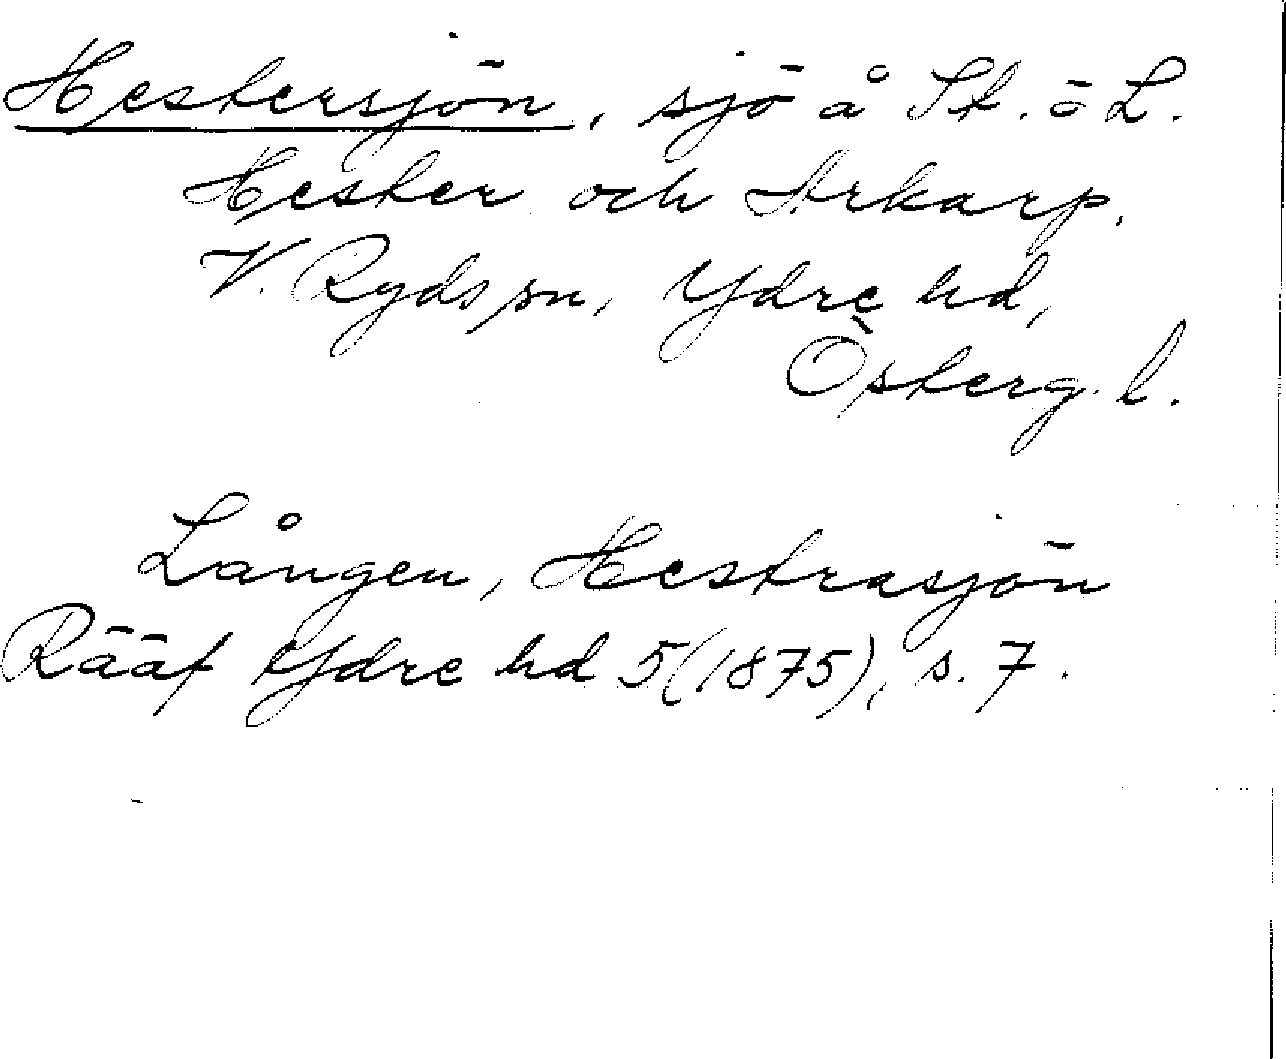 Hestersjön, sjö å St. o L.
Hester och Arkarp,
V. Ryds sn, Ydre hd,
Österg. l.
Lången, Hestrasjön
Rääf Ydre hd 5 (1875), s. 7.